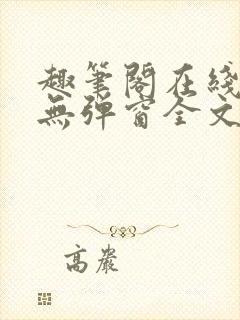 趣筆閣在綫
無彈窗全文
高嚴